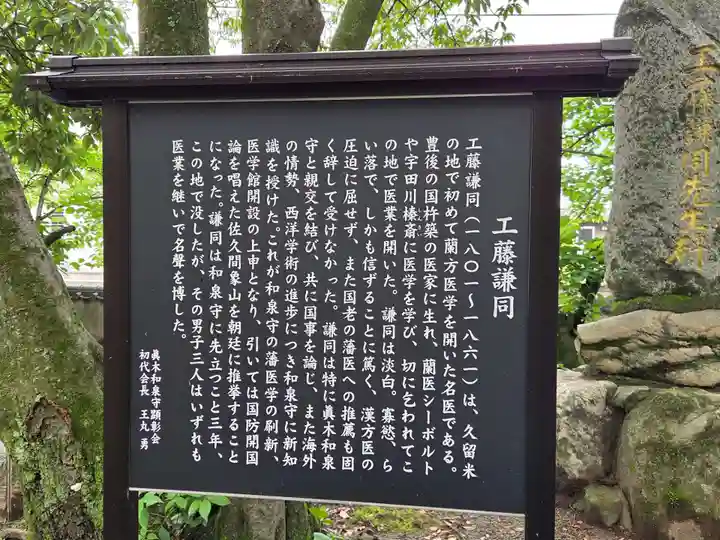 工藤謙同
工藤謙同（一八〇一～一八六一）は、久留米
の地で初めて蘭方医学を開いた名医である。
豊後の国杵築の医家に生れ、蘭医シーボルト
や宇田川榛斎に医学を学び、切に乞われてこ
の地で医業を開いた。謙同は淡白。寡慾、ら
い落で、しかも信ずることに篤く、漢方医の
圧迫に屈せず、また国老の藩医への推薦も固
く辞して受けなかった。謙同は特に眞木和泉
守と親交を結び、共に国事を論じ、また海外
の情勢、西洋学術の進歩につき和泉守に新知
識を授けた。これが和泉守の藩医学の刷新、
医学館開設の上申となり、引いては国防開国
論を唱えた佐久間象山を朝廷に推挙すること
になった。謙同は和泉守に先立つこと三年、
この地で没したが、その男子三人はいずれも
医業を継いで名聲を博した。
眞木和泉守顕彰会
初代会長　王丸　勇
工藤謙同先生碑